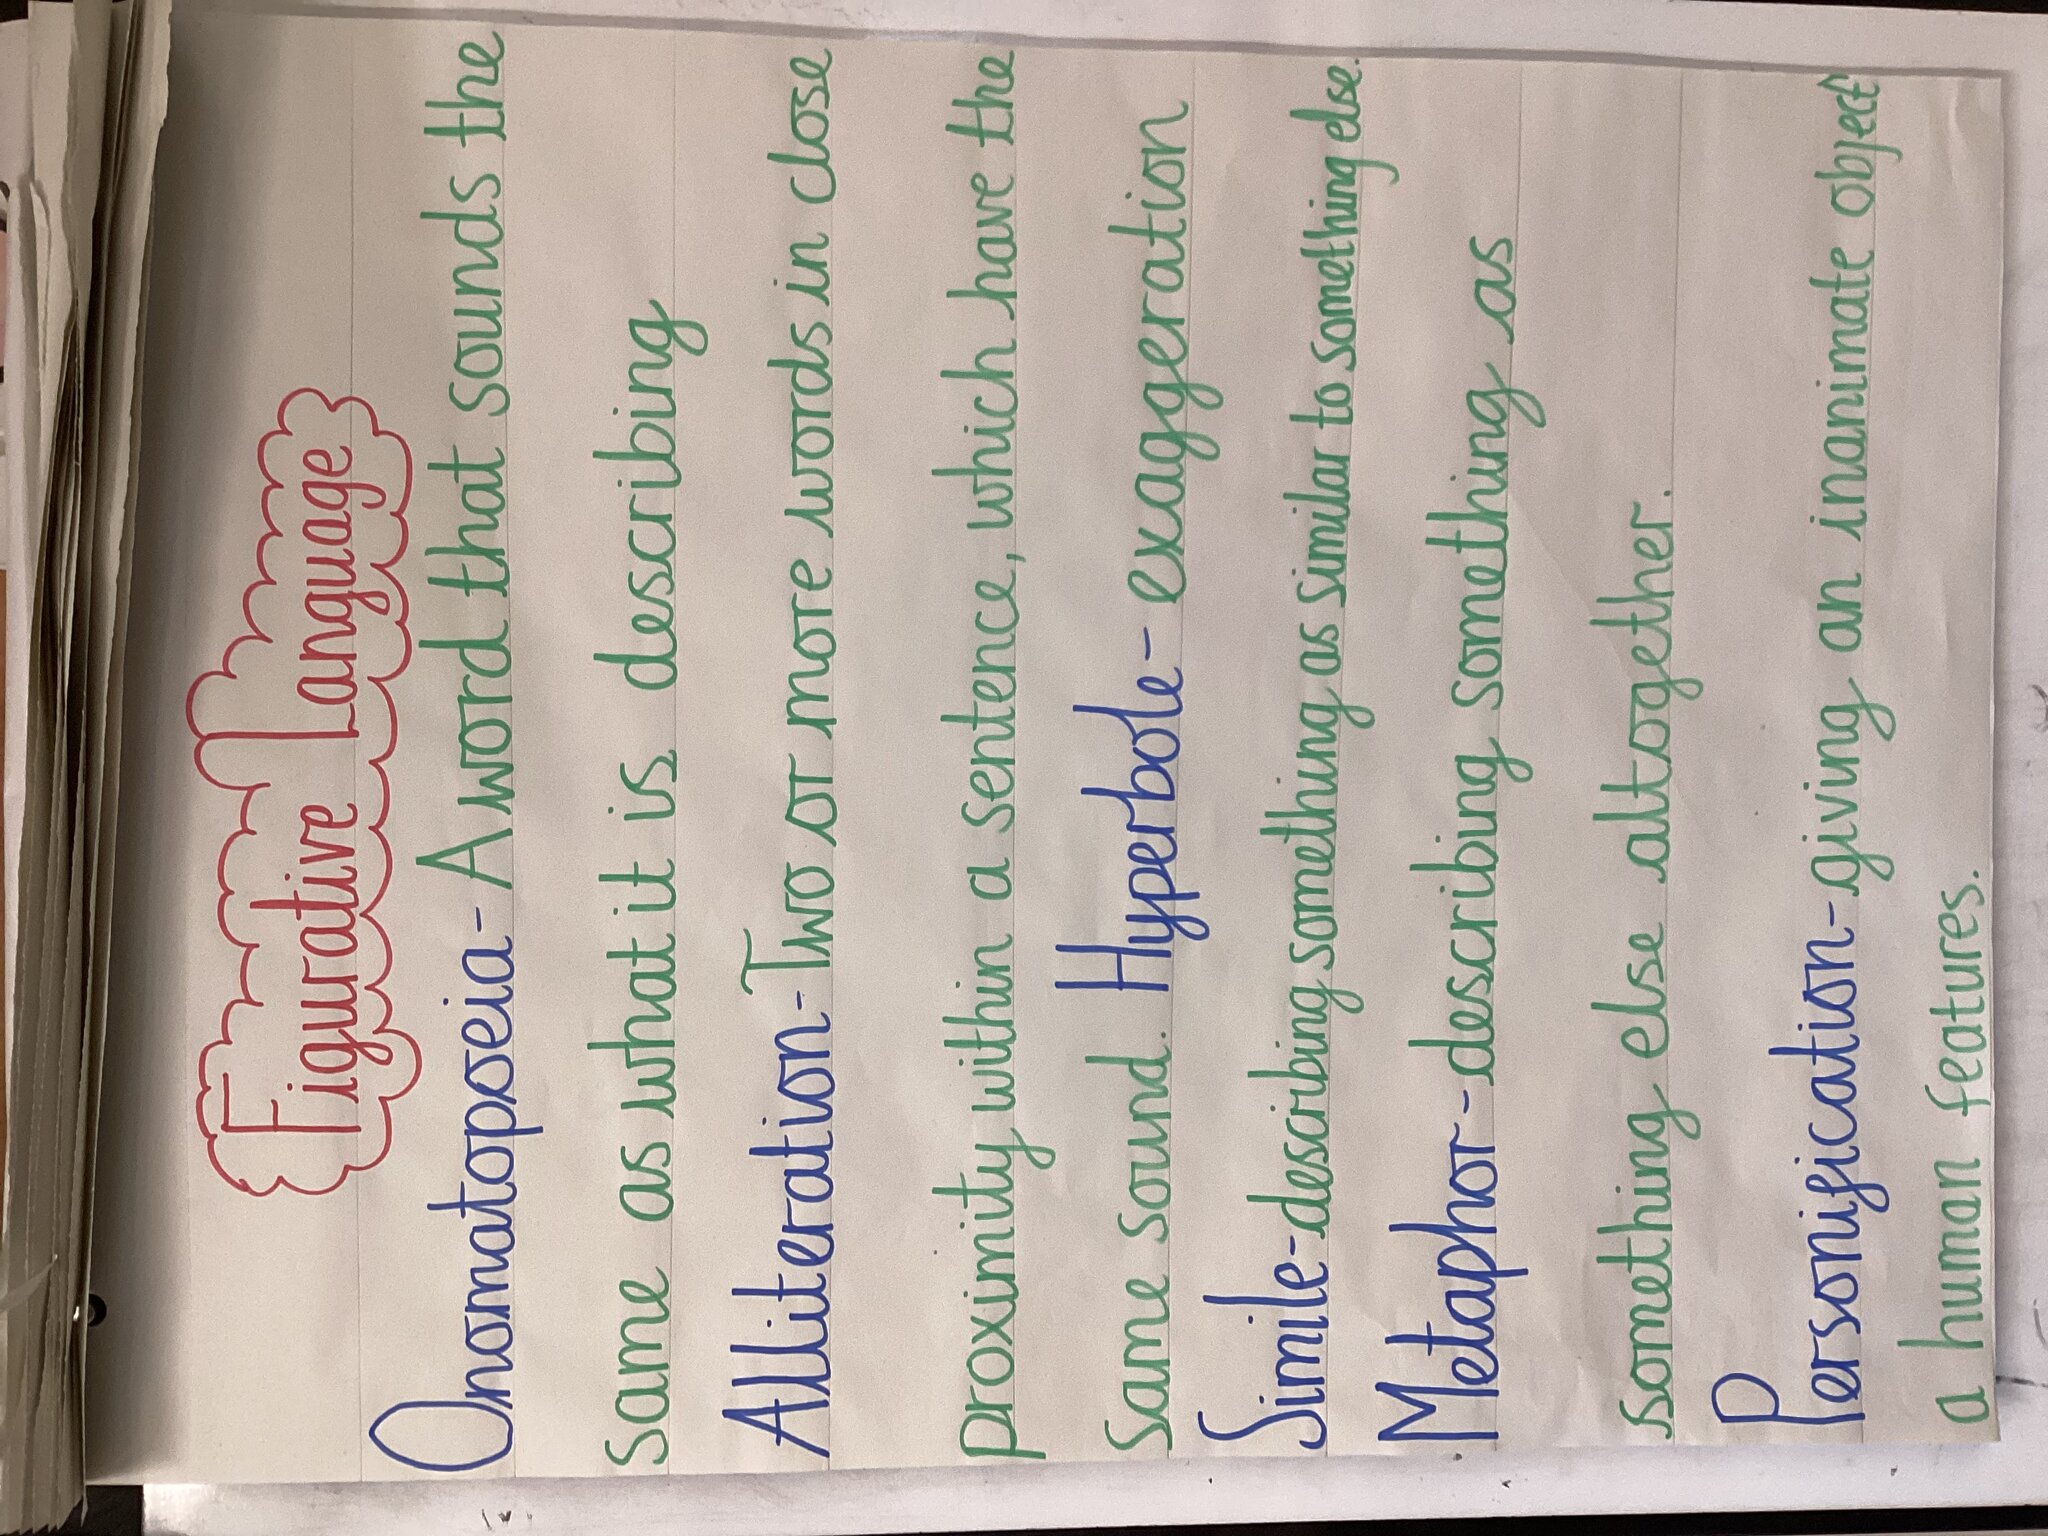 Figurative Language
Onomatopoeia - A word that sounds the
same as what it is describing
Alliteration - Two or more words in close
proximity within a sentence, which have the
same sound. Hyperbole - exaggeration
Simile - describing something as similar to something else.
Metaphor - describing something as
something else altogether.
Personification - giving an inanimate object
a human features.